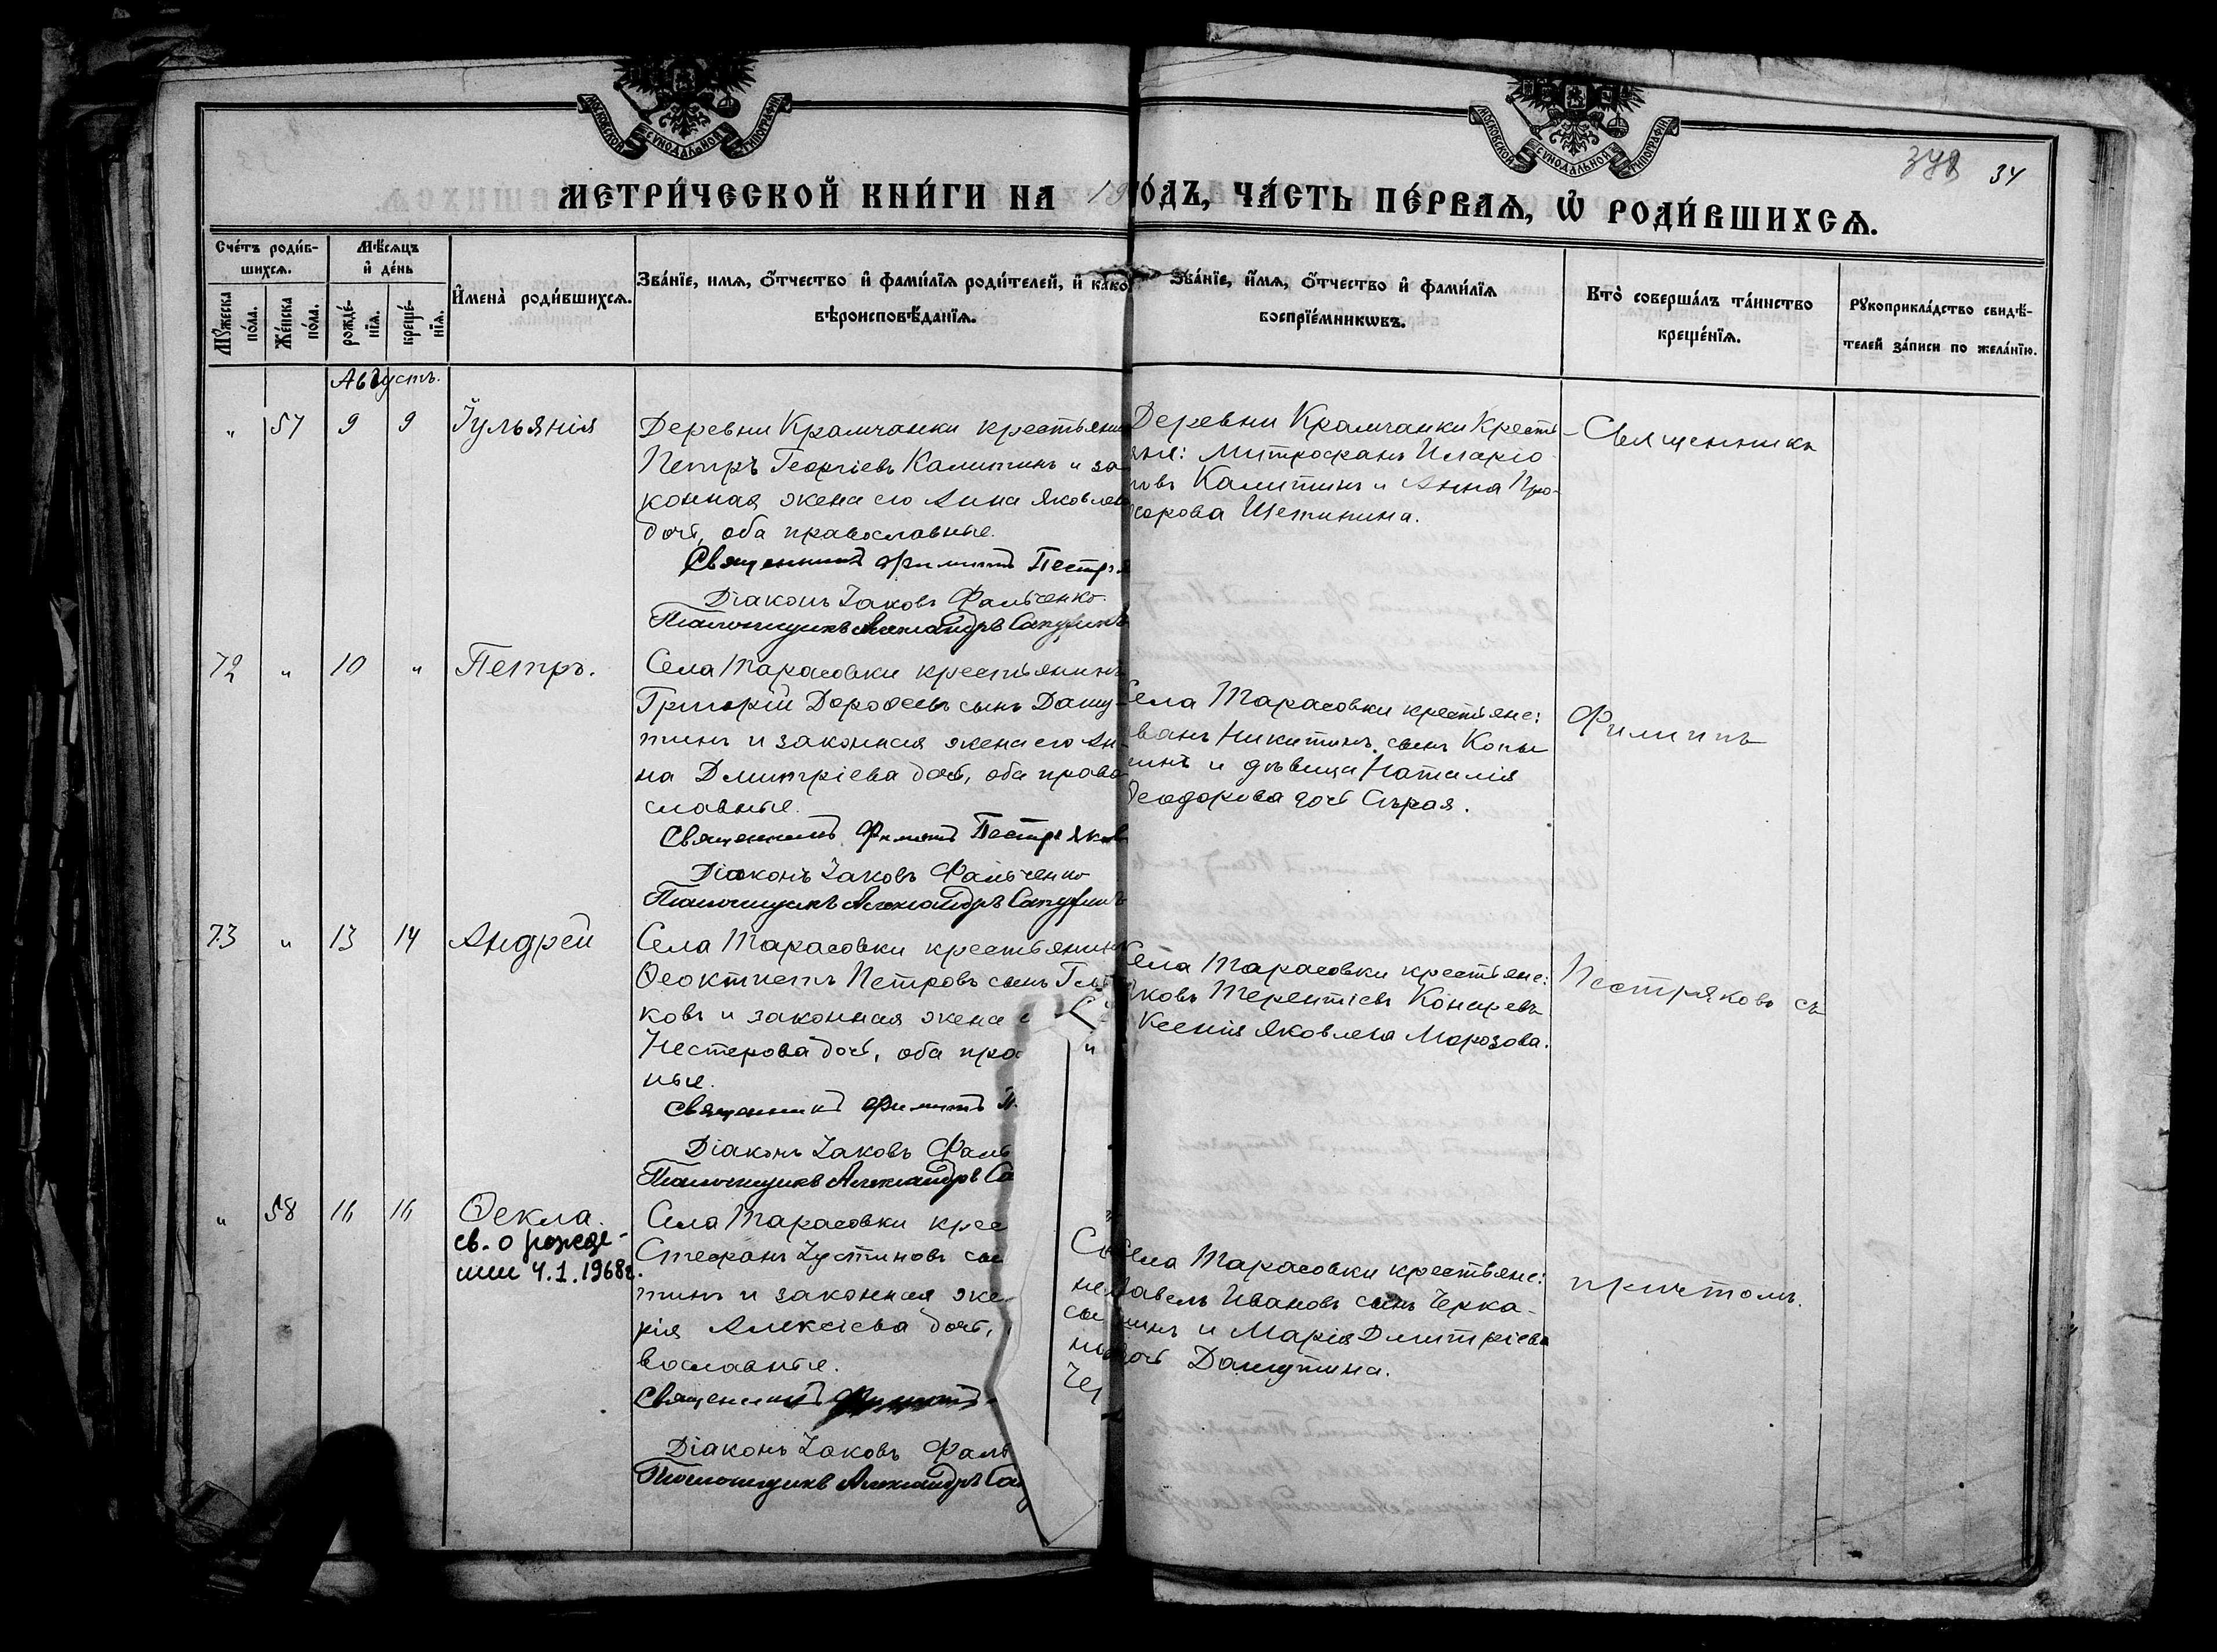 МОСКОВСКОЙ СѴНОДАЛЬНОЙ ТИПОГРАФІИ
МОСКОВСКОЙ СѴНОДАЛЬНОЙ ТИПОГРАФІИ
34
МЕТРИ́ЧЕСКОЙ КНИ́ГИ НА 19
ОДЪ, ЧА́СТЬ ПЕ́РВАѦ, Ѡ҆ РОДИ́ВШИХСѦ.
Сче́тъ роди́в-
шихсѧ.
Мѣ́сѧцъ
и҆ де́нь
Мꙋ́жеска
по́ла.
Же́нска
по́ла.
рожде́-
нїѧ.
креще́-
нїѧ.
И҆мена̀ роди́вшихсѧ.
Зва́нїе, имѧ, ѻ҆́тчество и҆ фами́лїѧ роди́телей, и҆ како
вѣроисповѣ́данїѧ.
Зва́нїе, и҆́мѧ, ѻ҆́тчество и҆ фами́лїѧ
воспрїе́мникѡвъ.
Кто̀ соверша́лъ та́инство
креще́нїѧ.
Рꙋкоприкла́дство свидѣ́-
телей за́писи по жела́нїю.
Августъ.
" 57 9 9 Іульянія
Деревни Крамчанки крестьянин
Петръ Георгіевъ Калитинъ и за
конная жена его Анна Яковлева
дочь, оба православные.
Священникъ Филиппъ Пестря
Діаконъ Іаковъ Фальченко.
Псаломщикъ Александръ
Деревни Крамчанки кресть-
яне: Митрофанъ Иларіо
новъ Калитинъ и Анна Про-
хорова Щетинина.
Священникъ
72 " 10 " Петръ.
Села Тарасовки крестьянинъ
Григорій Дороѳеевъ сынъ Дашу-
тинъ и законная жена его Ан-
на Дмитріева дочь, оба право
славные.
Священникъ Филиппъ Пестряков
Діаконъ Іаковъ Фальченко
Псаломщикъ Александръ
Села Тарасовки крестьяне:
ванъ Никитинъ сынъ Копы
инъ и дѣвица Наталія
Ѳеодорова дочь Сѣрая.
Филиппъ
73 " 13 14 Андрей
Села Тарасовки крестьянинъ
Ѳеоктистъ Петровъ сынъ
ковъ и законная жена
Нестерова дочь, оба пра
ные.
Священникъ Филиппъ П
Діаконъ Іаковъ Фаль
Псаломщикъ Александръ Са
Села Тарасовки крестьяне:
Яковъ Терентіевъ Конаревъ
Ксенія Яковлева Морозова.
Пестряковъ съ
" 58 16 16 Ѳекла.
св. о рожде-
нии 4.1.1968г.
Села Тарасовки крес
Стефанъ Іустиновъ сы
тинъ и законная же
рія Алексіева дочь,
вославные.
Священникъ Филиппъ
Діаконъ Іаковъ Фаль
Псаломщикъ Александръ Са
Села Тарасовки крестьяне:
Павелъ Ивановъ сынъ Черка-
шинъ и Марія Дмитріева
дочь Дашутина.
причтомъ.